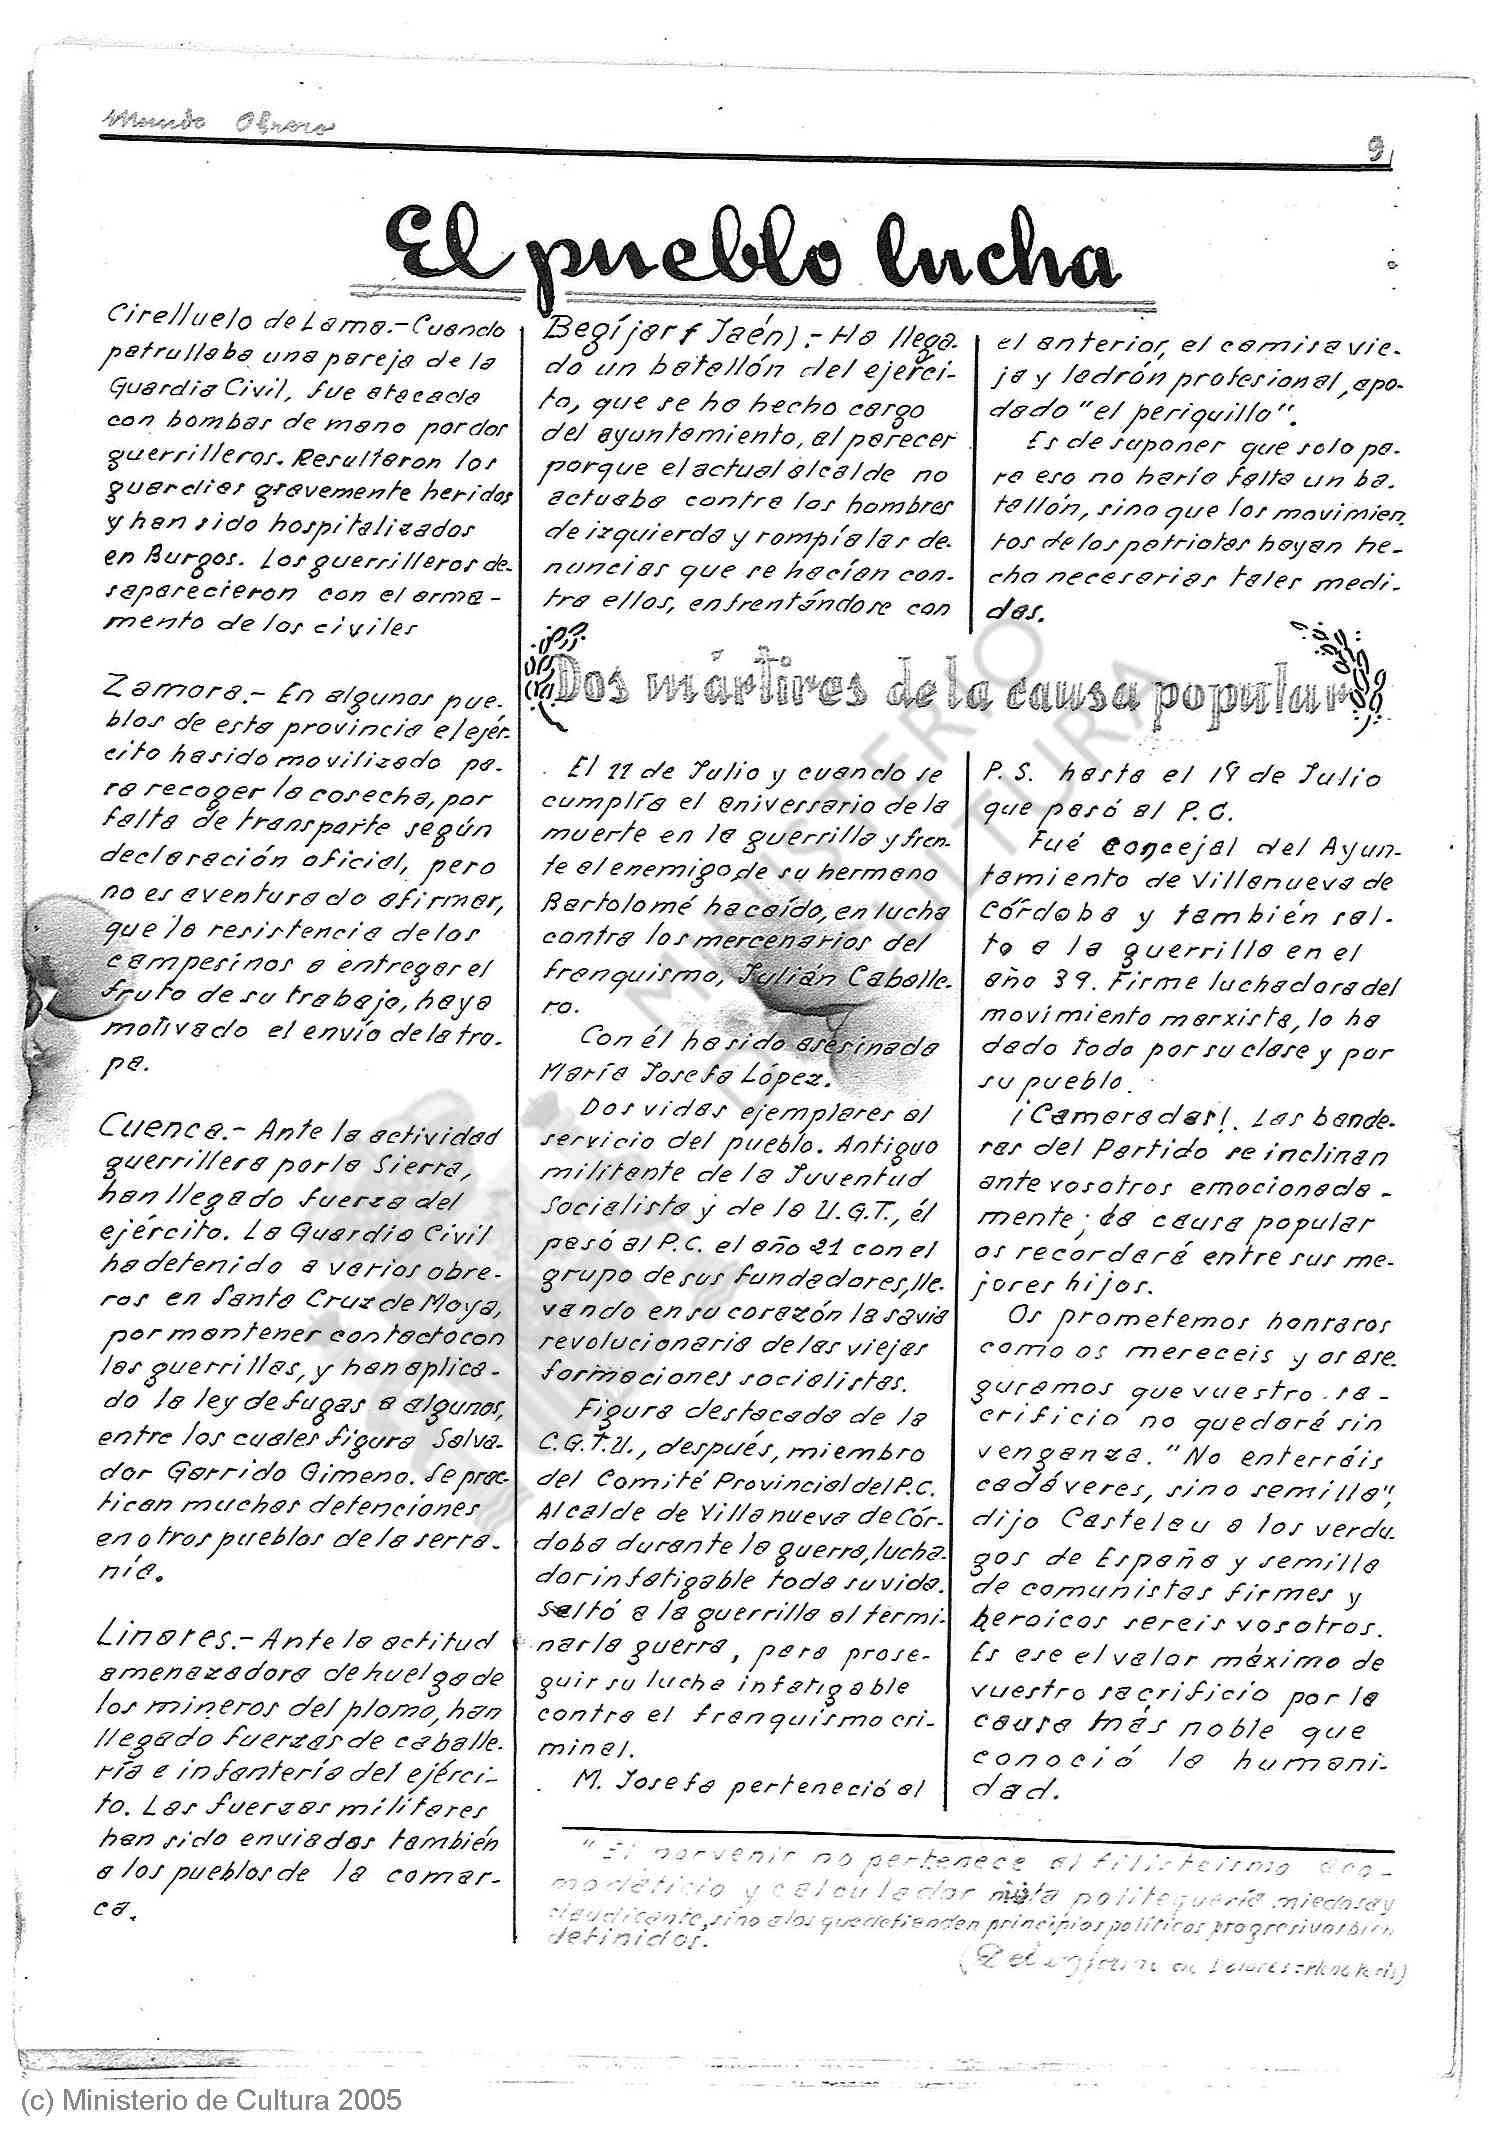 Mundo Obrero
9
El pueblo lucha
Cirelluelo de Lama.-Cuando
patrullaba una pareja de la
Guardia Civil, fue atacada
con bombas de mano por dos
guerrilleros. Resultaron los
guardias gravemente heridos
y han sido hospitalizados
en Burgos. Los guerrilleros de-
saparecieron con el arma-
mento de los civiles
Zamora.- En algunos pue-
blos de esta provincia el ejér-
cito ha sido movilizado pa-
ra recoger la cosecha, por
falta de transporte según
declaración oficial, pero
no es aventurado afirmar,
que la resistencia de los
campesinos a entregar el
fruto de su trabajo, haya
motivado el envío de la tro-
pa.
Cuenca.- Ante la actividad
guerrillera por la Sierra,
han llegado fuerza del
ejército. La Guardia Civil
ha detenido a varios obre-
ros en Santa Cruz de Moya,
por mantener contacto con
las guerrillas, y han aplica-
do la ley de fugas a algunos,
entre los cuales figura Salva-
dor Garrido Gimeno. Se prac-
tican muchas detenciones
en otros pueblos de la serra-
nía.
Linares.- Ante la actitud
amenazadora de huelga de
los mineros del plomo, han
llegado fuerzas de caballe-
ría e infantería del ejérci-
to. Las fuerzas militares
han sido enviadas también
a los pueblos de la comar-
ca.
Begíjar (Jaén).- Ha llega-
do un batallón del ejérci-
to, que se ha hecho cargo
del ayuntamiento, al parecer
porque el actual alcalde no
actuaba contra los hombres
de izquierda y rompía las de-
nuncias que se hacían con-
tra ellos, enfrentándose con
el anterior, el camisa vie-
ja y ladrón profesional, apo-
dado "el periquillo".
Es de suponer que solo pa-
ra eso no haría falta un ba-
tallón, sino que los movimien-
tos de los patriotas hayan he-
cho necesarias tales medi-
das.
Dos mártires de la causa popular
El 11 de Julio y cuando se
cumplía el aniversario de la
muerte en la guerrilla y fren-
te al enemigo, de su hermano
Bartolomé ha caído, en lucha
contra los mercenarios del
franquismo, Julián Caballe-
ro.
Con él ha sido asesinada
María Josefa López.
Dos vidas ejemplares al
servicio del pueblo. Antiguo
militante de la Juventud
Socialista y de la U.G.T., él
pasó al P.C. el año 21 con el
grupo de sus fundadores, lle-
vando en su corazón la savia
revolucionaria de las viejas
formaciones socialistas.
Figura destacada de la
C.G.T.U., después, miembro
del Comité Provincial del P.C.
Alcalde de Villanueva de Cór-
doba durante la guerra, lucha-
dor infatigable toda su vida.
Saltó a la guerrilla al termi-
nar la guerra, para prose-
guir su lucha infatigable
contra el franquismo cri-
minal.
M. Josefa perteneció al
P. S. hasta el 19 de Julio
que pasó al P.C.
Fué concejal del Ayun-
tamiento de Villanueva de
Córdoba y también sal-
to a la guerrilla en el
año 39. Firme luchadora del
movimiento marxista, lo ha
dado todo por su clase y por
su pueblo.
¡Camaradas!. Las bande-
ras del Partido se inclinan
ante vosotros emocionada-
mente; la causa popular
os recordará entre sus me-
jores hijos.
Os prometemos honraros
como os mereceis y os ase-
guramos que vuestro sa-
crificio no quedará sin
venganza. "No enterráis
cadáveres, sino semilla",
dijo Castelau a los verdu-
gos de España y semilla
de comunistas firmes y
heroicos sereis vosotros.
Es ese el valor máximo de
vuestro sacrificio por la
causa más noble que
conoció la humani-
dad.
"El porvenir no pertenece al filisteismo aco-
modaticio y calculador ni a la politequería miedosa y
claudicante, sino a los que defienden principios políticos progresivos bien
definidos.
(Del informe de Dolores
MINISTERIO
DE CULTURA
(c) Ministerio de Cultura 2005